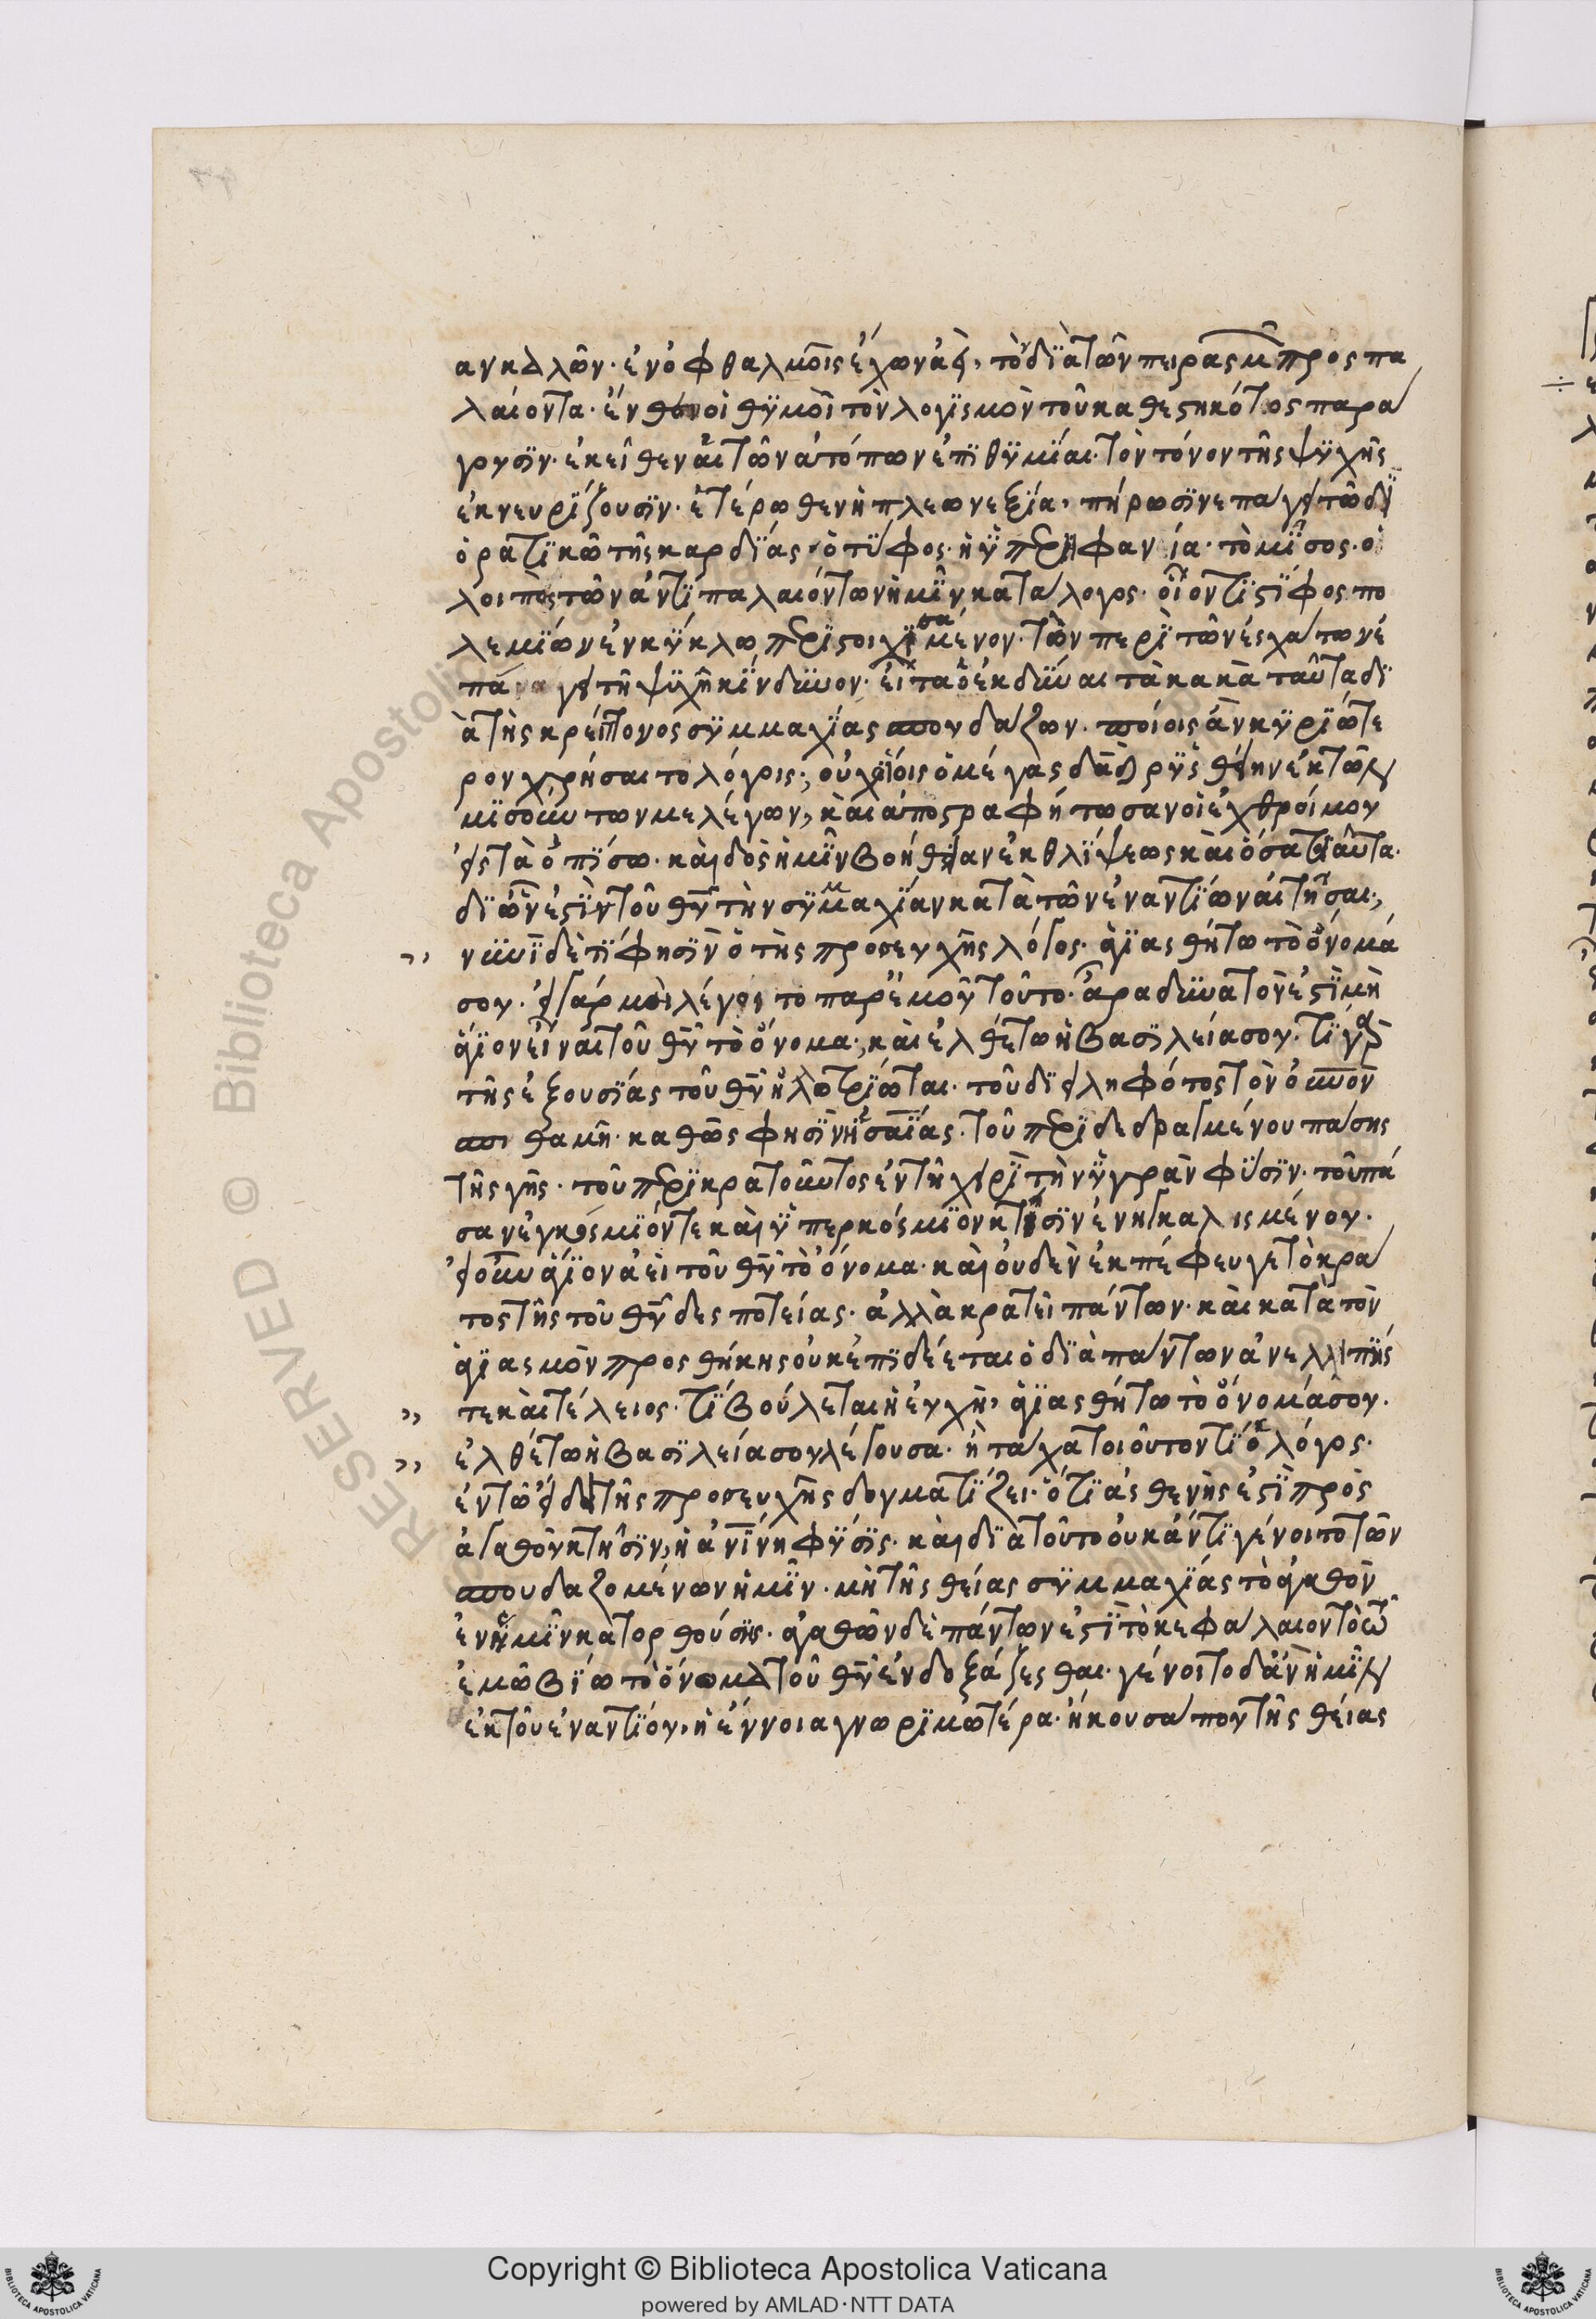 ανκαλῶν· ἐν ὀφθαλμοῖς ἔχων ἀεὶ, τὸν διὰ τῶν πειρασμῶν προσπα
λαίοντα· ἔνθεν οἱ θυμοὶ τὸν λογισμὸν τοῦ καθεστηκότος παρά
γουσιν· ἐκεῖθεν αἱ τῶν ἀτόπων ἐπιθυμίαι τὸν τόνον τῆς ψυχῆς
ἐκνευρίζουσιν· ἑτέρωθεν ἡ πλεωνεξία, πήρωσιν επάγει τῶ δι
ορατικῶ τῆς καρδίας· ὁ τῖφος· ἡ ὑπερηφανία· τὸ μῖσος· ὁ
λοιπὸς τῶν ἀντιπαλαιόντων ἡμῖν κατάλογος· οἷον τι στῖφος πο
λεμίων ἐν κύκλω περιστοιχησαμένον· τὸν περὶ τῶν ἐσχάτων ἐ
πάγει τῆ ψυχῆ κίνδυνον· εἶτα ὁ ἐκδῦναι τὰ κακὰ ταῦτα δι
ὰ τῆς κρείττονος συμμαχίας σπουδάζων· ποίοις ἂν κυριώτε
ρον χρήσαιτο λόγοις; οὐχ οἷοις ὁ μέγας δαδ ρυσθείην ἐκ τῶν
μισούντων με λέγων, καὶ ἀποστραφήτωσαν οἱ ἐχθροί μου
εἰς τὰ ὀπίσω· καὶ δὸς ἡμῖν βοήθειαν ἐκ θλίψεως καὶ ὅσα τοιαῦτα·
δι ὧν ἐστὶν τοῦ θυ τὴν συμμαχίαν κατὰ τῶν ἐναντίων αἰτῆσαι;
νυνὶ δὲ τί φησὶν ὁ τῆς προσευχῆς λόγος· ἁγιασθήτω τὸ ὄνομά
σου· εἰ γάρ μοι λέγοι το παρ᾽ ἐμοῦ τοῦτο· ἄρα δυνατὸν ἐστὶ μὴ
ἅγιον εἶναι τοῦ θυ τὸ ὄνομα; καὶ ἐλθέτω ἡ βασιλεία σου· τί γαρ
τῆς ἐξουσίας τοῦ θυ ἠλλοτρίωται· τοῦ διειληφότος τὸν οὐνον
σπιθαμῆ· καθῶς φησὶν ἠσαΐας· τοῦ περιδεδραγμένου πάσης
τῆς γῆς· τοῦ περικρατοῦντος ἐν τῆ χειρὶ τὴν ὑγρὰν φύσιν· τοῦ πᾶ
σαν ἐγκόσμιόν τε καὶ ὑπερκόσμιον κτίσιν ἐνηγκαλισμένου·
εἰ οὖν ἅγιον ἀεὶ τοῦ θυ τὸ ὄνομα· καὶ οὐδεν ἐκπέφευγε τὸ κρά
τος τῆς τοῦ θυ δεσποτείας· ἀλλὰ κρατεῖ πάντων· καὶ κατὰ τὸν
ἁγιασμὸν προσθήκης οὐκ ἐπιδέεται ὁ διὰ πάντων ἀνελλιπής
τε καὶ τέλειος· τί βούλεται ἡ εὐχὴ, ἁγιασθήτω τὸ ὄνομά σου·
ἐλθέτω ἡ βασιλεία σου λέγουσα· ἢ τάχα τοιοῦτον τί ὁ λόγος·
ἐν τῶ εἴδει τῆς προσευχῆς δογματίζει· ὅτι ἀσθενής ἐστὶ πρὸς
ἀγαθοῦ κτῆσιν, ἡ ἀν͞ινη φύσις· καὶ διὰ τοῦτο οὐκ ἄν τι γένοιτο τῶν
σπουδαζομένων ἡμῖν· μὴ τῆς θείας συμμαχίας τὸ ἀγαθὸν
ἐν ἡμῖν κατορθούσης· ἀγαθῶν δὲ πάντων ἐστὶ τὸ κεφάλαιον τὸ τῶ
ἐμῶ βίω τὸ ὄνομα τοῦ θυ ἐνδοξάζεσθαι· γένοιτο δ᾽ ἂν ἡμῖν
ἐκ τοῦ ἐναντίου, ἡ ἔννοια γνωριμωτέρα· ἤκουσά που τῆς θείας
RESERVED © Biblioteca Apostolica Vaticana
Copyright © Biblioteca Apostolica Vaticana
powered by AMLAD·NTT DATA